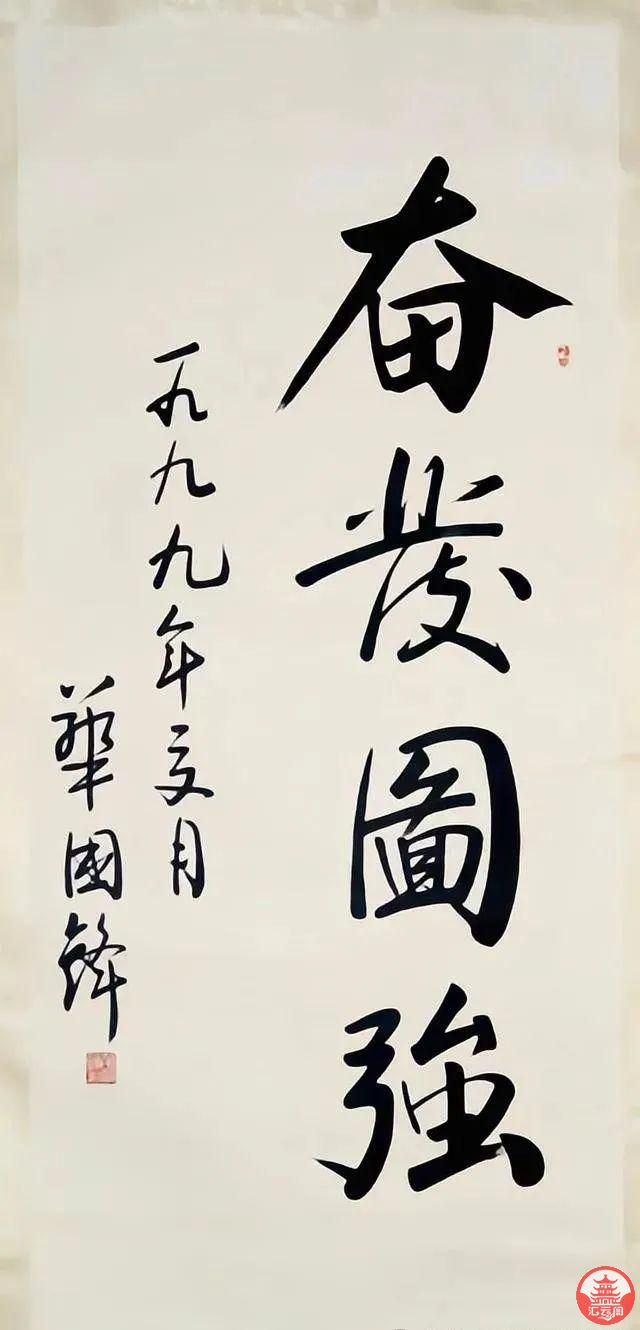 奋發圖強
一九九九年夏月
華國鋒
汇云阁